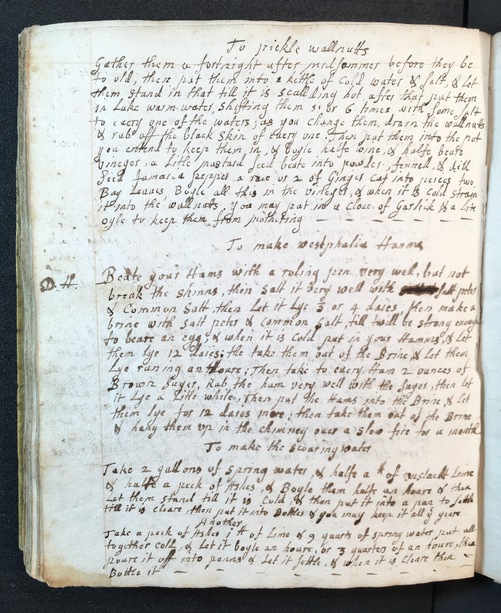 To pickle wallnutts
Gather them a fortnight after midsommer before they be
to old, then put them into a kettle of Cold water & salt, & Let
them stand in that till it is scallding hot after that put them
in Luke warm water, shefting them 5 or 6 times with some salt
to every one of the waters; as you change them, drain the wallnutts
& rub off the black skin of every one, then put them into the pot
you entend to keep them in, & boyle halfe wine, & halfe beate
vineger, a Little mustard seed beate into powder, fennell, & dill
seed Jamaica pepper, a race or 2 of Ginger Cut into peices two
Bay Leaves, Boyle all this in the vineger, & when it is Cold strayn
it into the wallnuts, you may put in a Clove of Garlick & a Litt
oyle to keep them from motheting
To make westphalia Hamms
H. Beate your Hams with a roling pin very well, but not
break the skinns, then salt it very well with salt peter
& Common Salt, then Let it Lye 3 or 4 daies, then make a
brine with salt peter & common salt, till twill be strong enough
to beare an egg; & when it is Cold put in your Hamms, & Let
them Lye 12 daies; the take them out of the Brine & Let them
Lye runing an houre; Then take to every Ham 2 ounces of
Brown suger, Rub the ham very well with the suger, then let
it Lye a Little while; Then put the Hams into the Brine, & Let
them lye for 12 daies more; then take them out of the Brine
& hang them up in the chimney over a slow fire for a month
To make the scouring water
Take 2 gallons of spring water, & halfe a ℔ of unslackt Lime
& halfe a peck of Ashes, & Boyle tham halfe an houre & then
Let them stand till it is Cold & then put it into a pan to settle
till it is cleare, then put it into Bottles & you may keep it all ye yeare
Another
Take a peck of Ashes 1 ℔ of Lime & 9 quarts of spring water put all
together cold, & Let it boyle an houre, or 3 quarters of an houre, then
poure it off into panns & Let it settle, & when it is cleare then
Bottle it